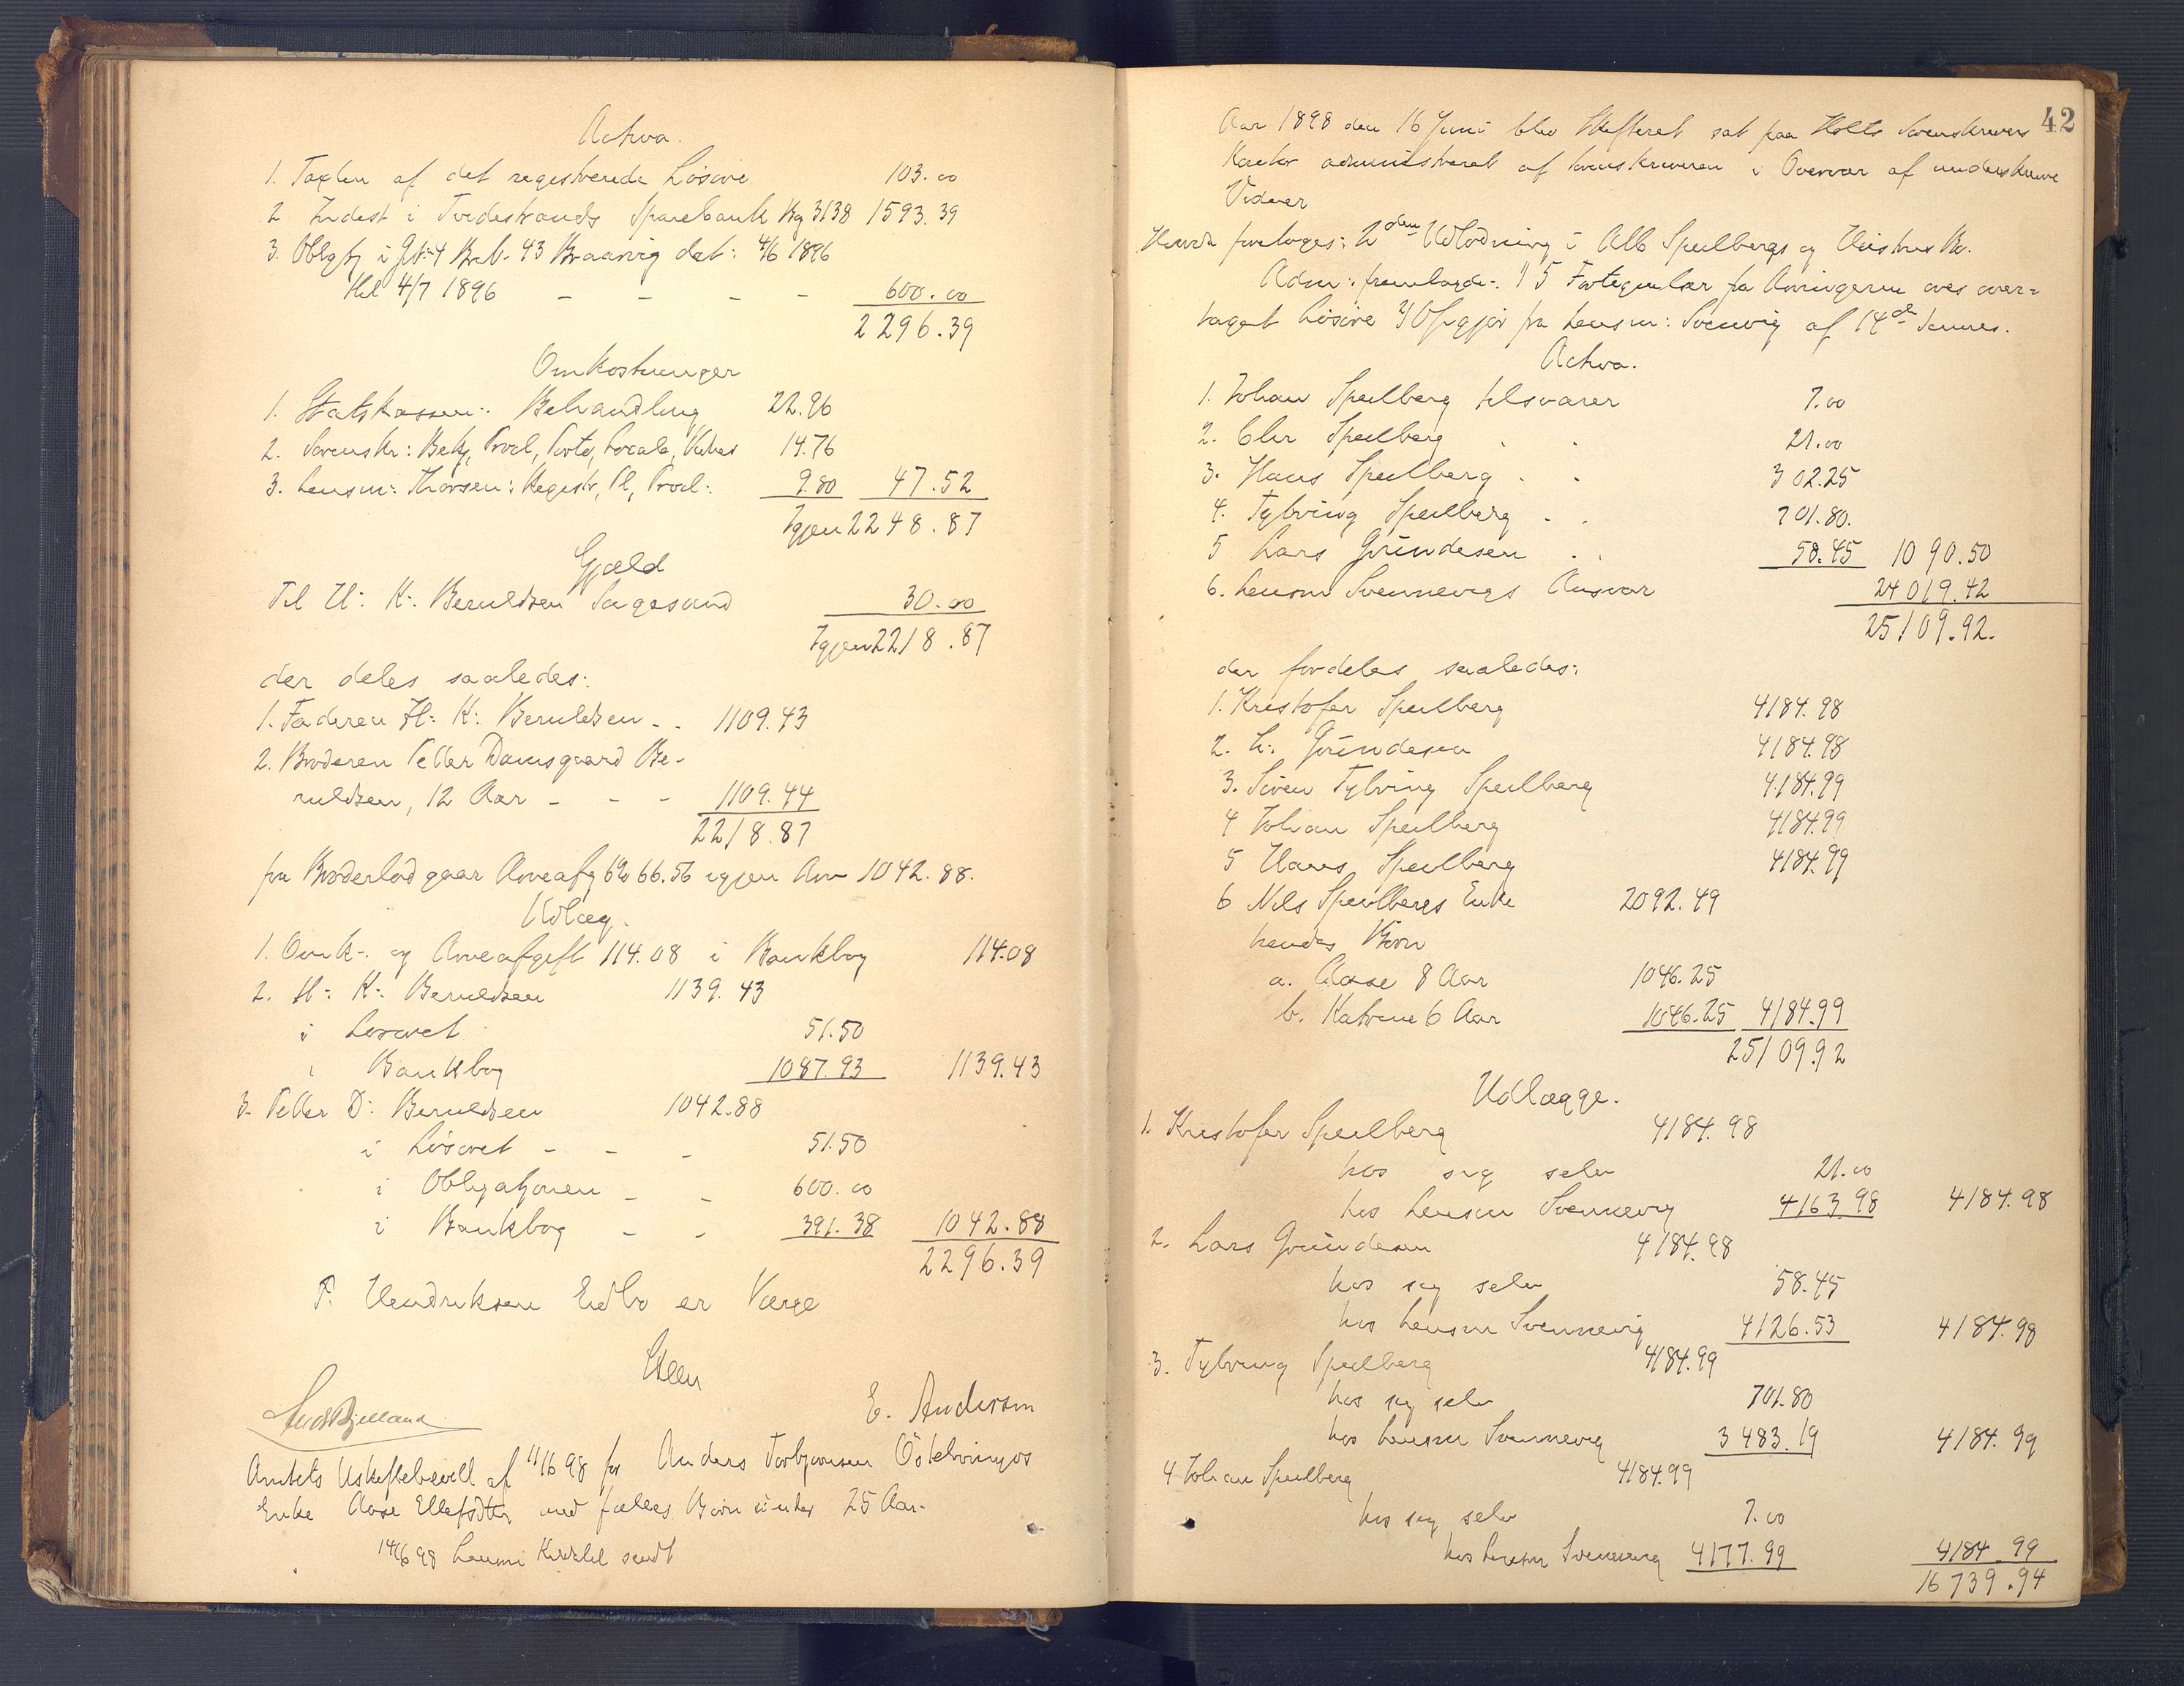 Activa.
1. Taxten af det registrerede Løsøre 103.00
2 Indest i Tvedestrands Sparebank Bg 3138 1593.39
3. Oblgtj i G.N: 4 Br.N. 43 Braarvig dat: 4/6 1896
thl 4/7 1896 - - - - 600.00
2296.39
Omkostninger
1. Statskassen: Behandling 22.96
2. Sorenskr: Bekj, Prod, Porto, Locale, Vidner 14.76
3. Lensm: Thorsen: Registr, Pl, Prod: 9.80 47.52
Igjen 2248.87
Gjæld
Til H: K: Beruldsen Sagesund 30.00
Igjen 2218.87
der deles saaledes:
1. Faderen H: K: Beruldsen - - 1109.43
2. Broderen Peder Damsgaard Be-
ruldsen, 12 Aar - - - 1109.44
2218.87
fra Broderlod gaar Arveafg 6% 66.56 igjen Arv 1042.88.
Udlæg.
1. Omk: og Arveafgift 114.08 i Bankbog 114.08
2. H: K: Beruldsen 1139.43
i Løsøret 51.50
i Bankbog 1087.93 1139.43
3. Peder D: Beruldsen 1042.88
i Løsøret - - - 51.50
i Obligationen - - 600.00
i Bankbog - - 391.38 1042.88
2296.39
F. Hendriksen Eidbo er Værge
Steen
E. Andersen
Amtets Uskiftebevill af 11/6 98 for Anders Torbjørnsen
Enke Aase Ellefsdtr med fælles Børn under 25 Aar.
14/6 98 Lensm sendt
42
Aar 1898 den 16 Juni blev Skifteret sat paa Holts Sorenskrivers
Kontor administreret af Sorenskriveren i Overvær af underskrevne
Vidner
Hvorda foretoges: 2den Udlodning i Alb Speilbergs og Hustrus Bo.
Adm: fremlagde: 1) 5 Fortegnelser fra Arvingerne over over-
taget Løsøre 2) Opgjør fra Lensm: Svennevig af 14de dennes.
Activa.
1. Johan Speilberg tilsvarer 7.00
2. Chr Speilberg . . 21.00
3. Hans Speilberg . . 302.25
4. Tybring Speilberg . . 701.80.
5 Lars Gründesen . . 58.45 1090.50
6. Lensm Svennevigs Ansvar 24019.42
25109.92.
der fordeles saaledes:
1. Kristofer Speilberg 4184.98
2. L: Gründesen 4184.98
3. Søren Tybring Speilberg 4184.99
4 Johan Speilberg 4184.99
5 Hans Speilberg 4184.99
6 Nils Speilbergs Enke 2092.49
hendes Børn
a. Aase 8 Aar 1046.25
b. Katrine 6 Aar 1046.25 4184.99
25109.92
Udlægge.
1. Kristofer Speilberg 4184.98
hos sig selv 21.00
hos Lensm Svennevig 4163.98 4184.98
2. Lars Gründesen 4184.98
hos sig selv 58.45
hos Lensm Svennevig 4126.53 4184.98
3. Tybring Speilberg 4184.99
hos sig selv 701.80
hos Lensm Svennevig 3483.19 4184.99
4 Johan Speilberg 4184.99
hos sig selv 7.00
hos Lensm Svennevig 4177.99 4184.99
16739.94